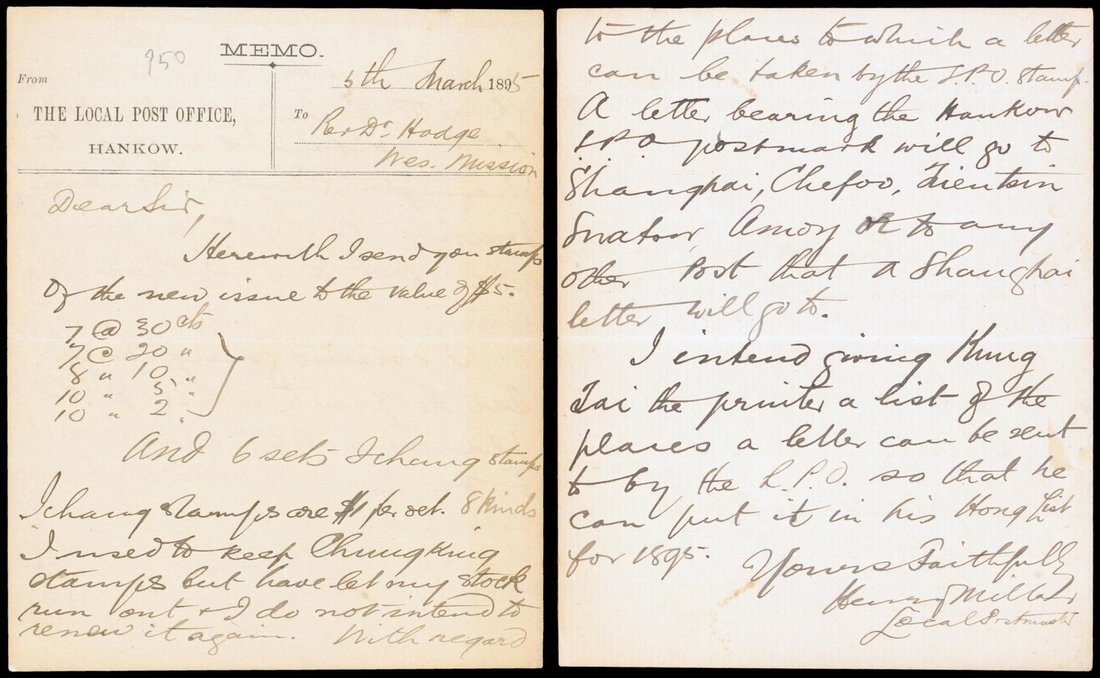 950
MEMO.
From
THE LOCAL POST OFFICE,
HANKOW.
5th March 1895
To
Per Dr Hodge
Wes. Mission
Dear Sir,
Herewith I send you stamps
of the new issue to the value of $5.
7 @ 30 cts
7 @ 20 "
8 " 10 "
10 " 5 "
10 " 2 "
And 6 sets Ichang stamps
Ichang stamps are $1 per set. 8 kinds
I used to keep Chungking
stamps but have let my stock
run out & I do not intend to
renew it again. With regard
to the places to which a letter
can be taken by the L.P.O. stamp.
A letter bearing the Hankow
L.P.O. postmark will go to
Shanghai, Chefoo, Tientsin
Swatow, Amoy or to any
other Post that a Shanghai
letter will go to.
I intend giving Kung
Tai the printer a list of the
places a letter can be sent
to by the L.P.O. so that he
can put it in his Hong List
for 1895.
Yours Faithfully
Henry Millar
Local Postmaster